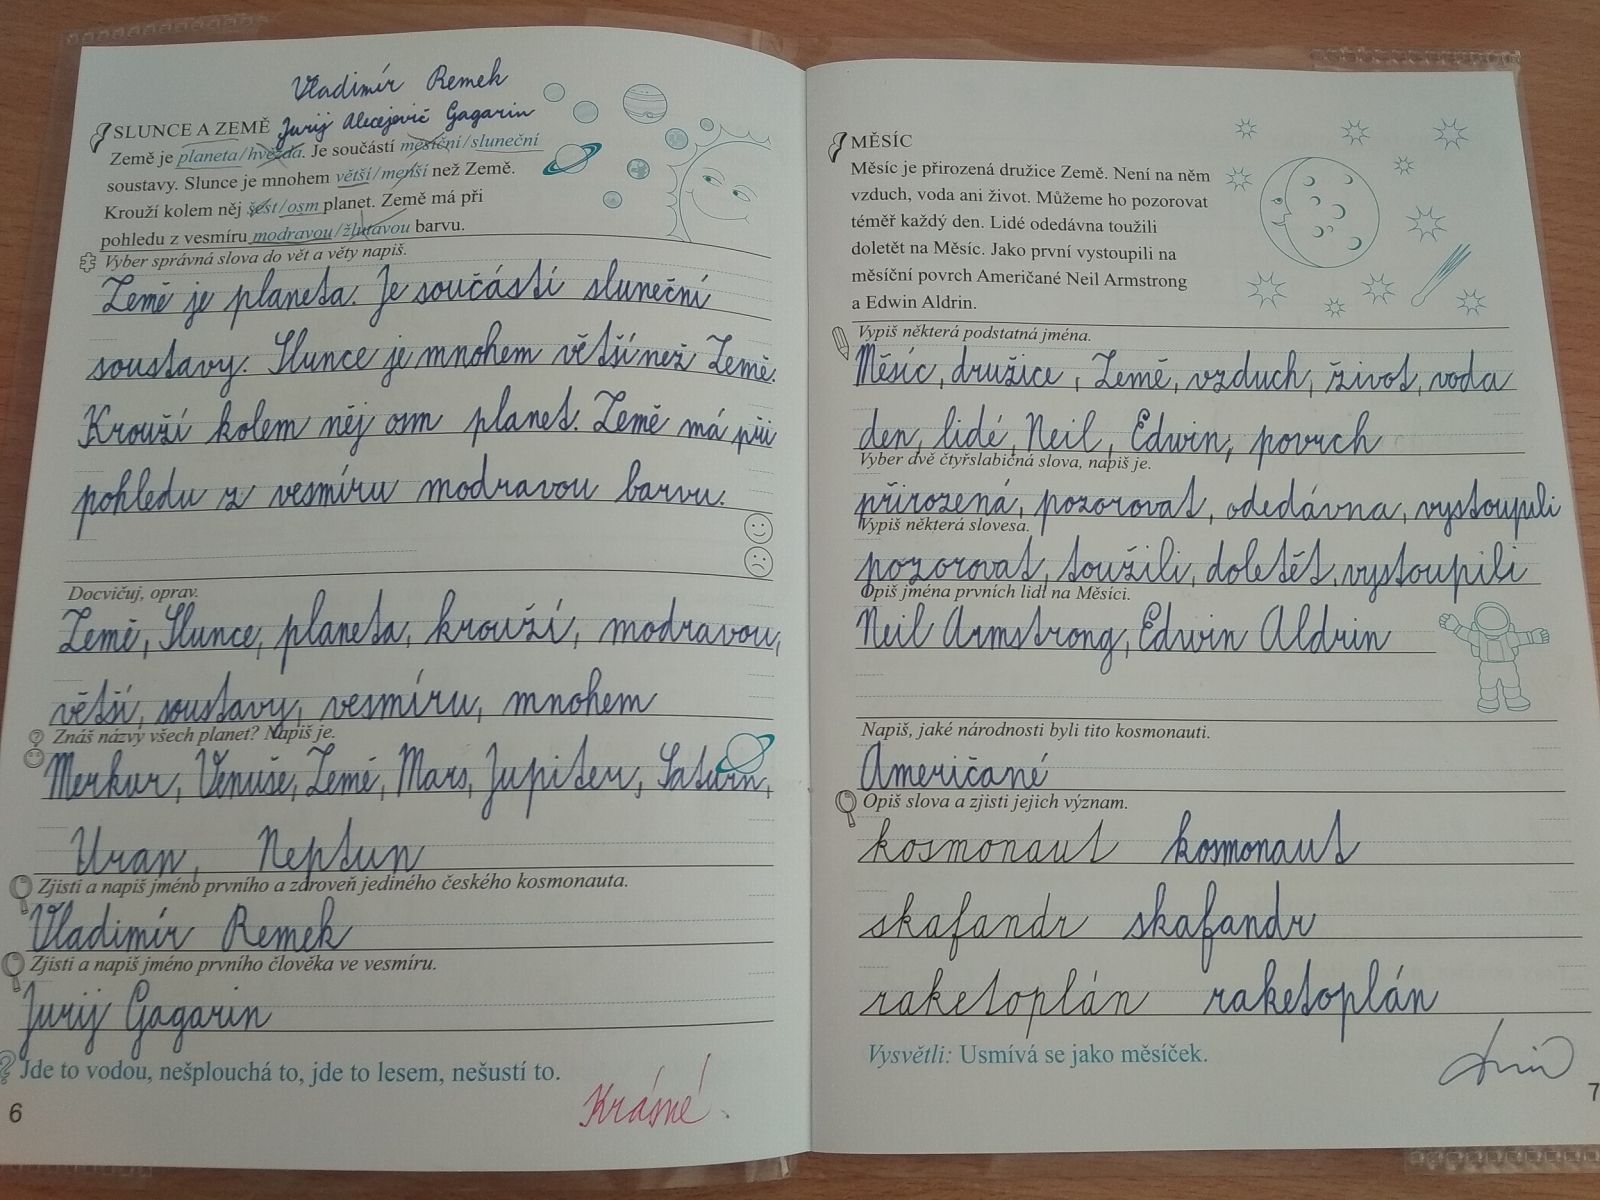 Vladimír Remek
Jurij Alecejevič Gagarin
SLUNCE A ZEMĚ
Země je planeta/hvězda. Je součástí měsíční/sluneční
soustavy. Slunce je mnohem větší/menší než Země.
Krouží kolem něj šest/osm planet. Země má při
pohledu z vesmíru modravou/žlutavou barvu.
Vyber správná slova do vět a věty napiš.
Země je planeta. Je součástí sluneční
soustavy. Slunce je mnohem větší než Země.
Krouží kolem něj osm planet. Země má při
pohledu z vesmíru modravou barvu.
Docvičuj, oprav.
Země, Slunce, planeta, krouží, modravou,
větší, soustavy, vesmíru, mnohem
Znáš názvy všech planet? Napiš je.
Merkur, Venuše, Země, Mars, Jupiter, Saturn,
Uran, Neptun
Zjisti a napiš jméno prvního a zároveň jediného českého kosmonauta.
Vladimír Remek
Zjisti a napiš jméno prvního člověka ve vesmíru.
Jurij Gagarin
Jde to vodou, nešplouchá to, jde to lesem, nešustí to.
Krásné!
6
MĚSÍC
Měsíc je přirozená družice Země. Není na něm
vzduch, voda ani život. Můžeme ho pozorovat
téměř každý den. Lidé odedávna toužili
doletět na Měsíc. Jako první vystoupili na
měsíční povrch Američané Neil Armstrong
a Edwin Aldrin.
Vypiš některá podstatná jména.
Měsíc, družice, Země, vzduch, život, voda
den, lidé, Neil, Edwin, povrch
Vyber dvě čtyřslabičná slova, napiš je.
přirozená, pozorovat, odedávna, vystoupili
Vypiš některá slovesa.
pozorovat, toužili, doletět, vystoupili
Opiš jména prvních lidí na Měsíci.
Neil Armstrong, Edwin Aldrin
Napiš, jaké národnosti byli tito kosmonauti.
Američané
Opiš slova a zjisti jejich význam.
kosmonaut kosmonaut
skafandr skafandr
raketoplán raketoplán
Vysvětli: Usmívá se jako měsíček.
7